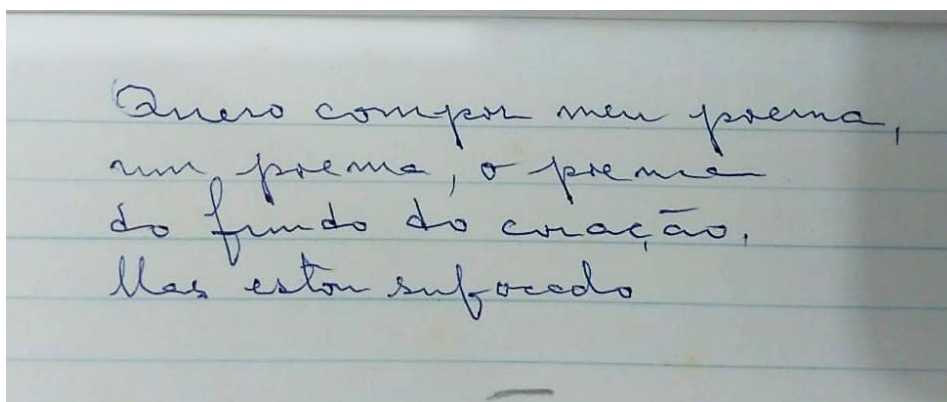 Quero compor meu poema,
um poema, o poema
do fundo do coração.
Mas estou sufocado